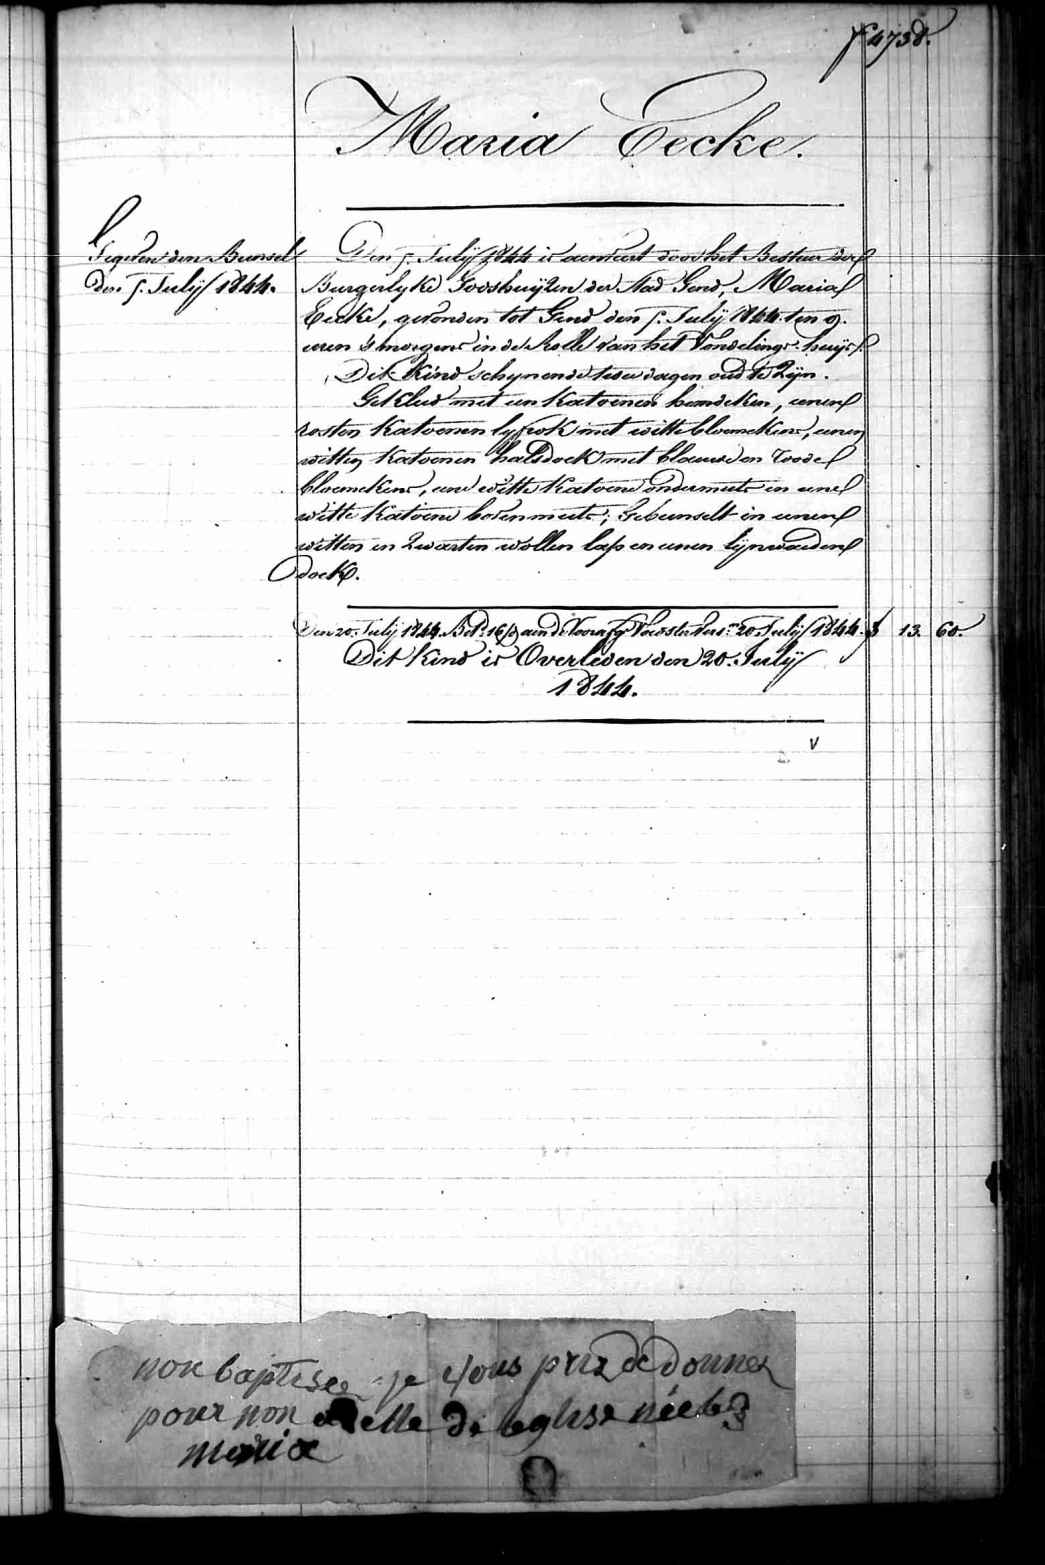 f 4738.
Maria Eecke.
Gegeven den Bunsel
den 5. Julij 1844.
Den 5. Julij 1844 is aenveert door het Bestuer der
Burgerlyke Godshuijzen der Stad Gend, Maria
Eecke, gevonden tot Gend den 5. Julij 1844. ten 9.
uren 's morgens in de Rolle van het Vondelings-huijs.
Dit Kind schynende twee dagen oud te Zijn.
Gekleed met een Katoenen hemdeken, eenen
rosten Katoenen lyfrok met witte bloemekens, eenen
witten Katoenen halsdoek met blauwe en roode
bloemekens, eene witte Katoene ondermuts en eene
witte Katoene bovenmuts; Gebunselt in eenen
witten en Zwarten wollen lap en eenen lijnwaeden
doek.
Den 20. Julij 1844. Bet. 16 aen de Voedster 20. Julij 1844. 13. 60.
Dit Kind is Overleden den 20. Julij
1844.
non baptisee je vous priz de donner
pour non elle de leglise née le 3
maria